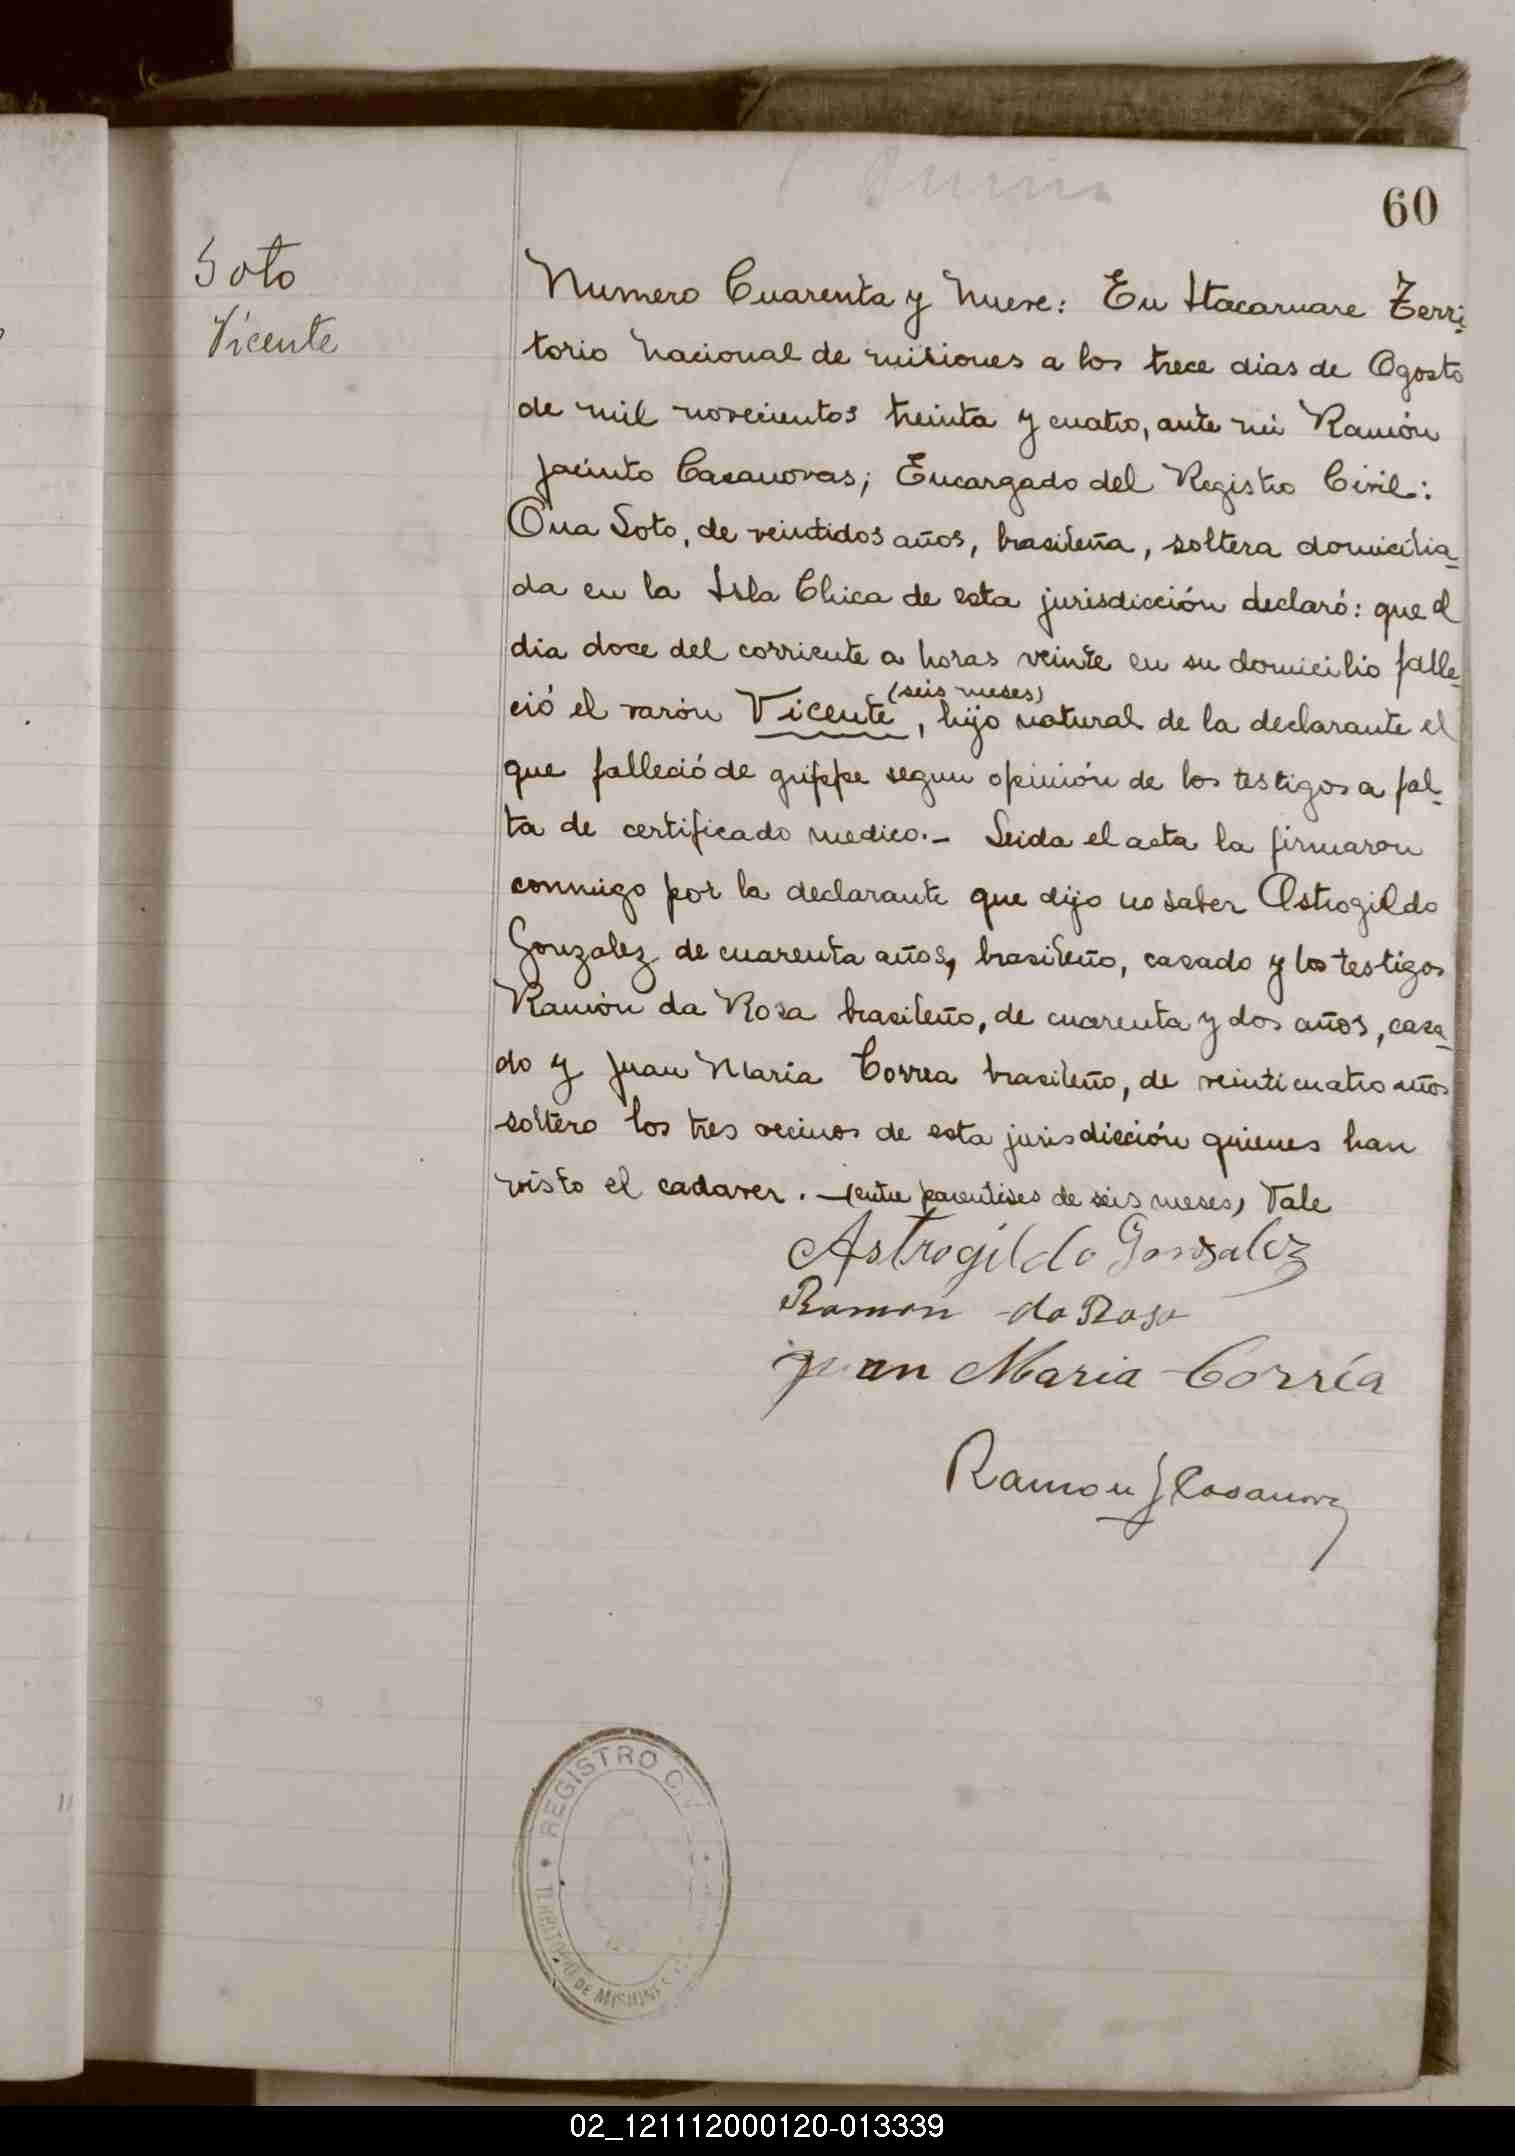 60
Soto
Vicente
Numero Cuarenta y Nueve: En Itacaruare Terri-
torio Nacional de Misiones a los trece dias de Agosto
de mil novecientos treinta y cuatro, ante mi Ramón
Jacinto Casanovas; Encargado del Registro Civil:
Ana Soto, de veintidos años, brasileña, soltera domicilia-
da en la Isla Chica de esta jurisdicción declaró: que el
dia doce del corriente a horas veinte en su domicilio falle-
(seis meses)
ció el varón Vicente, hijo natural de la declarante el
que falleció de grippe segun opinión de los testigos a fal-
ta de certificado medico.- Leida el acta la firmaron
conmigo por la declarante que dijo no saber Astrogildo
Gonzalez de cuarenta años, brasileño, casado y los testigos
Ramón da Rosa brasileño, de cuarenta y dos años, casa-
do y Juan Maria Correa brasileño, de veinticuatro años
soltero los tres vecinos de esta jurisdicción quienes han
visto el cadaver. -(entre parentises de seis meses) Vale
Astrogildo Gonzalez
Ramon da Rosa
Juan Maria Corrêa
Ramon J Casanova
REGISTRO CIV
TERRITORIO DE MISIONES
02_121112000120-013339